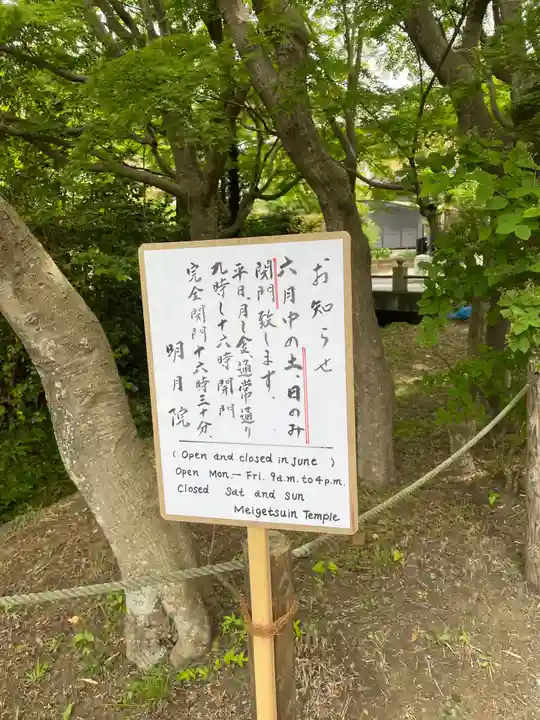 お知らせ
六月中の土、日のみ
閉門致します。
平日、月〜金、通常通り
九時〜十六時 開門
完全閉門十六時三十分。
明月院
( Open and closed in June )
Open Mon.－Fri. 9a.m. to 4p.m.
Closed Sat and Sun
Meigetsuin Temple